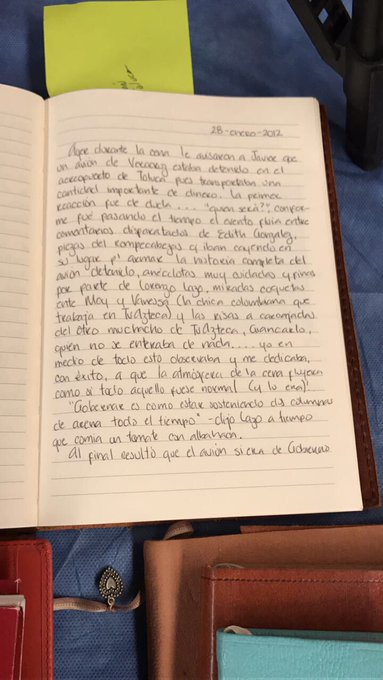 28-enero-2012
Ayer durante la cena le avisaron a Javier que
un avión de Veracruz estaba detenido en el
aereopuerto de Toluca pues transportaba una
cantidad importante de dinero. La primera
reacción fue de duda.... "quien será?", confor-
me fué pasando el tiempo el evento fluía entre
comentarios disparatados de Edith González,
piezas del rompecabezas q iban cayendo en
su lugar p' armar la historia completa del
avión detenido, anécdotas muy cuidadas y finas
por parte de Lorenzo Lazo, miradas coquetas
ente May y Vanessa (la chica colombiana que
trabaja en TvAzteca) y las risas a carcajadas
del otro muchacho de TvAzteca, Giancarlo,
quien no se enteraba de nada.... yo en
medio de todo esto observaba y me dedicaba,
con éxito, a que la atmósfera de la cena fluyera
como si todo aquello fuese normal (y lo era)!
"Gobernar es como estar sosteniendo dos columnas
de arena todo el tiempo" -dijo Lazo a tiempo
que comía un tomate con albahaca.
Al final resultó que el avión si era de Gobierno